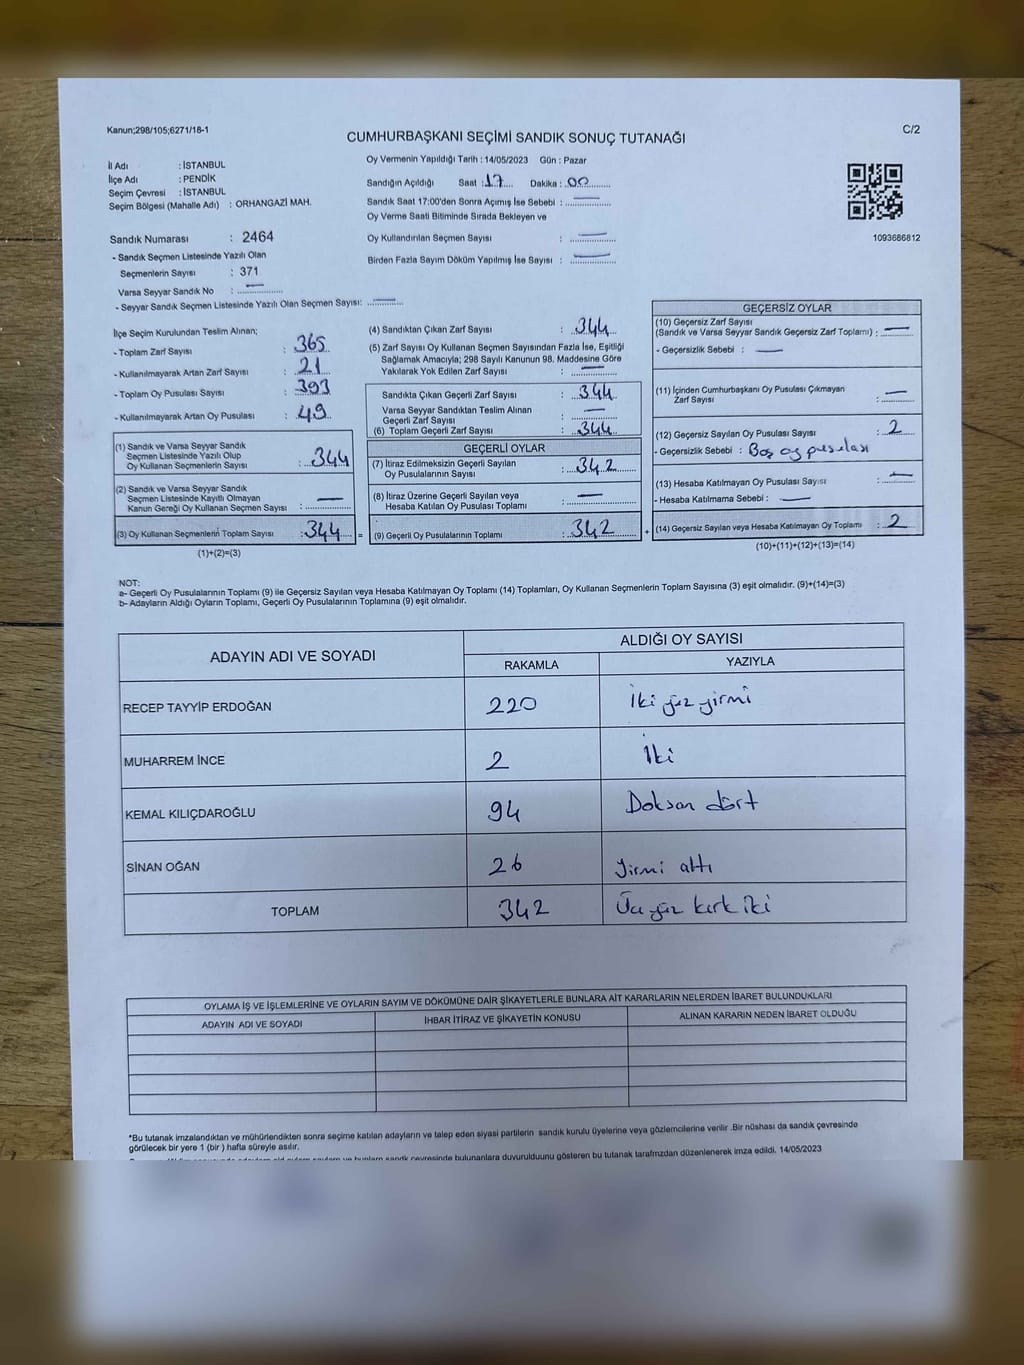 Kanun;298/105;6271/18-1
CUMHURBAŞKANI SEÇİMİ SANDIK SONUÇ TUTANAĞI
C/2
İl Adı : İSTANBUL
İlçe Adı : PENDİK
Seçim Çevresi : İSTANBUL
Seçim Bölgesi (Mahalle Adı) : ORHANGAZİ MAH.
Oy Vermenin Yapıldığı Tarih : 14/05/2023 Gün : Pazar
Sandığın Açıldığı Saat : 17 Dakika : 00
Sandık Saat 17:00'den Sonra Açımış İse Sebebi : —
Oy Verme Saati Bitiminde Sırada Bekleyen ve
Oy Kullandırılan Seçmen Sayısı : —
Birden Fazla Sayım Döküm Yapılmış İse Sayısı : —
1093686812
Sandık Numarası : 2464
- Sandık Seçmen Listesinde Yazılı Olan
Seçmenlerin Sayısı : 371
Varsa Seyyar Sandık No : —
- Seyyar Sandık Seçmen Listesinde Yazılı Olan Seçmen Sayısı: —
İlçe Seçim Kurulundan Teslim Alınan;
- Toplam Zarf Sayısı : 365
- Kullanılmayarak Artan Zarf Sayısı : 21
- Toplam Oy Pusulası Sayısı : 393
- Kullanılmayarak Artan Oy Pusulası : 49
(1) Sandık ve Varsa Seyyar Sandık
Seçmen Listesinde Yazılı Olup
Oy Kullanan Seçmenlerin Sayısı : 344
(2) Sandık ve Varsa Seyyar Sandık
Seçmen Listesinde Kayıtlı Olmayan
Kanun Gereği Oy Kullanan Seçmen Sayısı : —
(3) Oy Kullanan Seçmenlerin Toplam Sayısı : 344 =
(1)+(2)=(3)
(4) Sandıktan Çıkan Zarf Sayısı : 344
(5) Zarf Sayısı Oy Kullanan Seçmen Sayısından Fazla İse, Eşitliği
Sağlamak Amacıyla; 298 Sayılı Kanunun 98. Maddesine Göre
Yakılarak Yok Edilen Zarf Sayısı : —
Sandıkta Çıkan Geçerli Zarf Sayısı : 344
Varsa Seyyar Sandıktan Teslim Alınan
Geçerli Zarf Sayısı : —
(6) Toplam Geçerli Zarf Sayısı : 344
GEÇERLİ OYLAR
(7) İtiraz Edilmeksizin Geçerli Sayılan
Oy Pusulalarının Sayısı : 342
(8) İtiraz Üzerine Geçerli Sayılan veya
Hesaba Katılan Oy Pusulası Toplamı : —
(9) Geçerli Oy Pusulalarının Toplamı : 342 +
GEÇERSİZ OYLAR
(10) Geçersiz Zarf Sayısı
(Sandık ve Varsa Seyyar Sandık Geçersiz Zarf Toplamı) : —
- Geçersizlik Sebebi : —
(11) İçinden Cumhurbaşkanı Oy Pusulası Çıkmayan
Zarf Sayısı : —
(12) Geçersiz Sayılan Oy Pusulası Sayısı : 2
- Geçersizlik Sebebi : Boş oy pusulası
(13) Hesaba Katılmayan Oy Pusulası Sayısı : —
- Hesaba Katılmama Sebebi : —
(14) Geçersiz Sayılan veya Hesaba Katılmayan Oy Toplamı : 2
(10)+(11)+(12)+(13)=(14)
NOT:
a- Geçerli Oy Pusulalarının Toplamı (9) ile Geçersiz Sayılan veya Hesaba Katılmayan Oy Toplamı (14) Toplamları, Oy Kullanan Seçmenlerin Toplam Sayısına (3) eşit olmalıdır. (9)+(14)=(3)
b- Adayların Aldığı Oyların Toplamı, Geçerli Oy Pusulalarının Toplamına (9) eşit olmalıdır.
ADAYIN ADI VE SOYADI ALDIĞI OY SAYISI
RAKAMLA YAZIYLA
RECEP TAYYİP ERDOĞAN 220 İki yüz yirmi
MUHARREM İNCE 2 İki
KEMAL KILIÇDAROĞLU 94 Doksan dört
SİNAN OĞAN 26 Yirmi altı
TOPLAM 342 Üç yüz kırk iki
OYLAMA İŞ VE İŞLEMLERİNE VE OYLARIN SAYIM VE DÖKÜMÜNE DAİR ŞİKAYETLERLE BUNLARA AİT KARARLARIN NELERDEN İBARET BULUNDUKLARI
ADAYIN ADI VE SOYADI İHBAR İTİRAZ VE ŞİKAYETİN KONUSU ALINAN KARARIN NEDEN İBARET OLDUĞU
*Bu tutanak imzalandıktan ve mühürlendikten sonra seçime katılan adayların ve talep eden siyasi partilerin sandık kurulu üyelerine veya gözlemcilerine verilir .Bir nüshası da sandık çevresinde
görülecek bir yere 1 (bir ) hafta süreyle asılır.
ve bunların sandık çevresinde bulunanlara duyurulduunu gösteren bu tutanak tarafmzdan düzenlenerek imza edildi. 14/05/2023